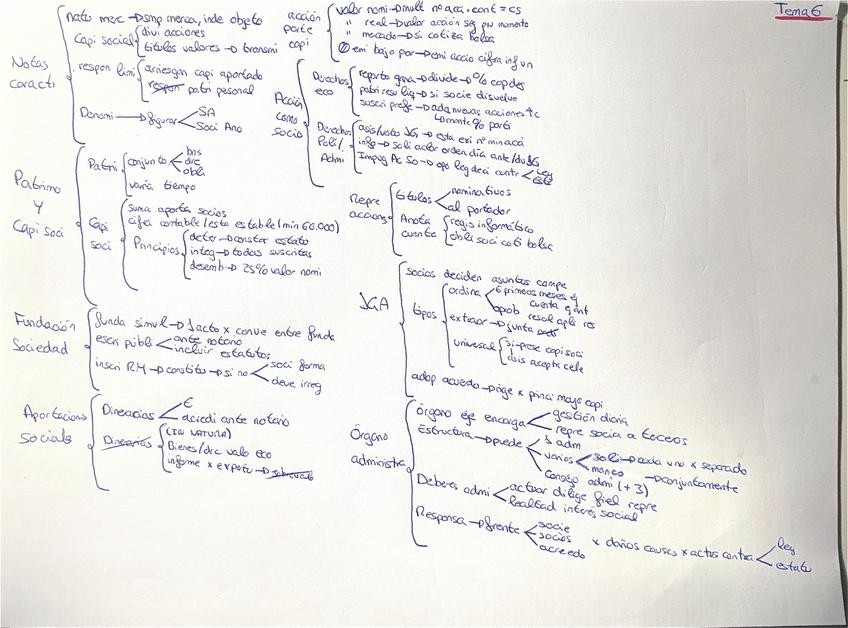 Tema 6
Notas caracti
natu merc → smp merca, inde objeto
Capi social
divi acciones
titulos valores → transmi
respon limi
arriesgan capi aportado
patri pesonal
Denomi → figurar
SA
Soci Ano
Patrimo y Capi soci
Patri
conjunto
bns
drc
obli
varia tiempo
Capi soci
suma aporta socios
cifra contable/esta estable (min 60.000)
Principios
deter → constar estato
integ → todas suscritas
desemb → 25% valor nomi
Fundación Sociedad
funda simul → 1 acto x conve entre funda
escri públi
ante notario
incluir estatutos
inscri RM → constitu → si no
soci forma
deve irreg
Aportacions Socials
Dinerarias
€
acredi ante notario
Dinerarias
(IN NATURA)
Bienes/drc valo eco
informe x experto →
acción parte capi
valor nomi → mult nº acci, cont = cs
" real → valor acción sg pn momento
" mecado → si cotiza bolsa
emi bajo par → emi accio cifra inf vn
Acción como socio
Derechos eco
reparto gana → divide → % cap des
patri resu liq → si socie disuelve
suscri prefe → adq nuevas acciones
→ mante % parti
Derechos Polí/ Admi
asis/voto JG → esta exi nº min acci
info → soli aclar orden dia ante/du JG
Impug Ac So → opo leg deci contr
Ley
Est
Repre accions
titulos
nominativos
al portador
Anota cuenta
regis informático
obli soci coti bolsa
JGA
socios deciden asuntos compe
tipos
ordina
6 primeos meses ej
cuenta ej ant
apob resol apli res
extraor → junta
universal
si-pose capi soci
asis acepte cele
adop acuerdo → rige x princi mayo capi
Órgano administra
Órgano eje encarga
gestión diaria
repre socia a teceros
Estructura → puede
1 adm
varios
soli → cada uno x separado
manco → conjuntamente
Consejo admi (+3)
Deberes admi
actuar dilige fiel repre
lealtad interés social
Responsa → frente
socie
socios
acreedo
x daños causos x actos contra
ley
estatu